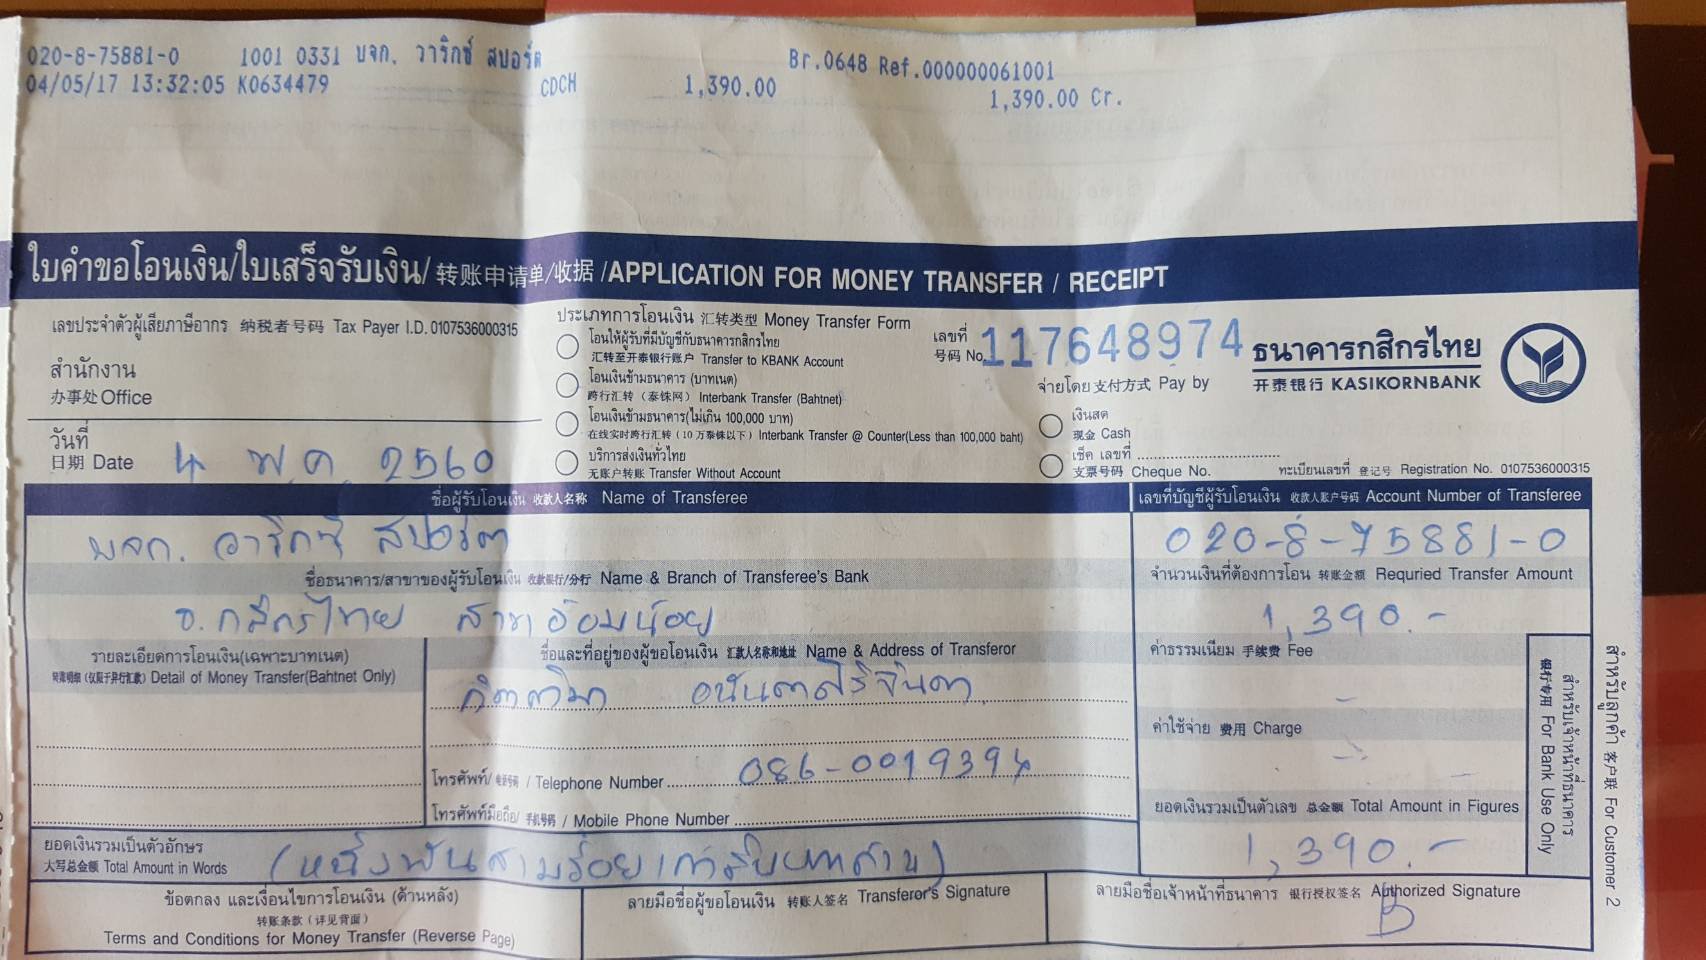 020-8-75881-0 1001 0331 บจก. วาริกซ์ สปอร์ต Br.0648 Ref.000000061001
04/05/17 13:32:05 K0634479 CDCH 1,390.00 1,390.00 Cr.
ใบคำขอโอนเงิน/ใบเสร็จรับเงิน/ 转账申请单/收据 /APPLICATION FOR MONEY TRANSFER / RECEIPT
เลขประจำตัวผู้เสียภาษีอากร 纳税者号码 Tax Payer I.D. 0107536000315
สำนักงาน
办事处 Office
วันที่
日期 Date 4 พ.ค. 2560
ประเภทการโอนเงิน 汇转类型 Money Transfer Form
โอนให้ผู้รับที่มีบัญชีกับธนาคารกสิกรไทย
汇转至开泰银行账户 Transfer to KBANK Account
โอนเงินข้ามธนาคาร (บาทเนต)
跨行汇转（泰铢网）Interbank Transfer (Bahtnet)
โอนเงินข้ามธนาคาร(ไม่เกิน 100,000 บาท)
在线实时跨行汇转（10 万泰铢以下）Interbank Transfer @ Counter(Less than 100,000 baht)
บริการส่งเงินทั่วไทย
无账户转账 Transfer Without Account
เลขที่
号码 No. 117648974
จ่ายโดย 支付方式 Pay by
เงินสด
现金 Cash
เช็ค เลขที่
支票号码 Cheque No.
ธนาคารกสิกรไทย
开泰银行 KASIKORNBANK
ทะเบียนเลขที่ 登记号 Registration No. 0107536000315
ชื่อผู้รับโอนเงิน 收款人名称 Name of Transferee
บจก. วาริกซ์ สปอร์ต
เลขที่บัญชีผู้รับโอนเงิน 收款人账户号码 Account Number of Transferee
020-8-75881-0
ชื่อธนาคาร/สาขาของผู้รับโอนเงิน 收款银行/分行 Name & Branch of Transferee's Bank
ธ.กสิกรไทย สาขาอ้อมน้อย
จำนวนเงินที่ต้องการโอน 转账金额 Requried Transfer Amount
1,390.-
รายละเอียดการโอนเงิน(เฉพาะบาทเนต)
转账明细 (仅限于异行汇款) Detail of Money Transfer(Bahtnet Only)
ชื่อและที่อยู่ของผู้ขอโอนเงิน 汇款人名称和地址 Name & Address of Transferor
อนันตศิริจินดา
โทรศัพท์/ 电话号码 / Telephone Number 086-0019394
โทรศัพท์มือถือ/ 手机号码 / Mobile Phone Number
ค่าธรรมเนียม 手续费 Fee
-
ค่าใช้จ่าย 费用 Charge
-
ยอดเงินรวมเป็นตัวเลข 总金额 Total Amount in Figures
1,390.-
สำหรับเจ้าหน้าที่ธนาคาร
银行专用 For Bank Use Only
สำหรับลูกค้า 客户联 For Customer 2
ยอดเงินรวมเป็นตัวอักษร
大写总金额 Total Amount in Words (หนึ่งพันสามร้อยเก้าสิบบาทถ้วน)
ข้อตกลง และเงื่อนไขการโอนเงิน (ด้านหลัง)
转账条款（详见背面）
Terms and Conditions for Money Transfer (Reverse Page)
ลายมือชื่อผู้ขอโอนเงิน 转账人签名 Transferor's Signature
ลายมือชื่อเจ้าหน้าที่ธนาคาร 银行授权签名 Authorized Signature